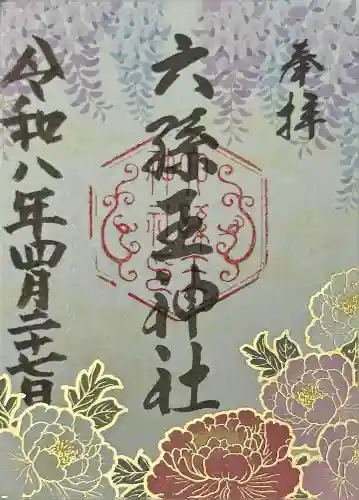 奉拝
六孫王神社
令和八年四月二十七日